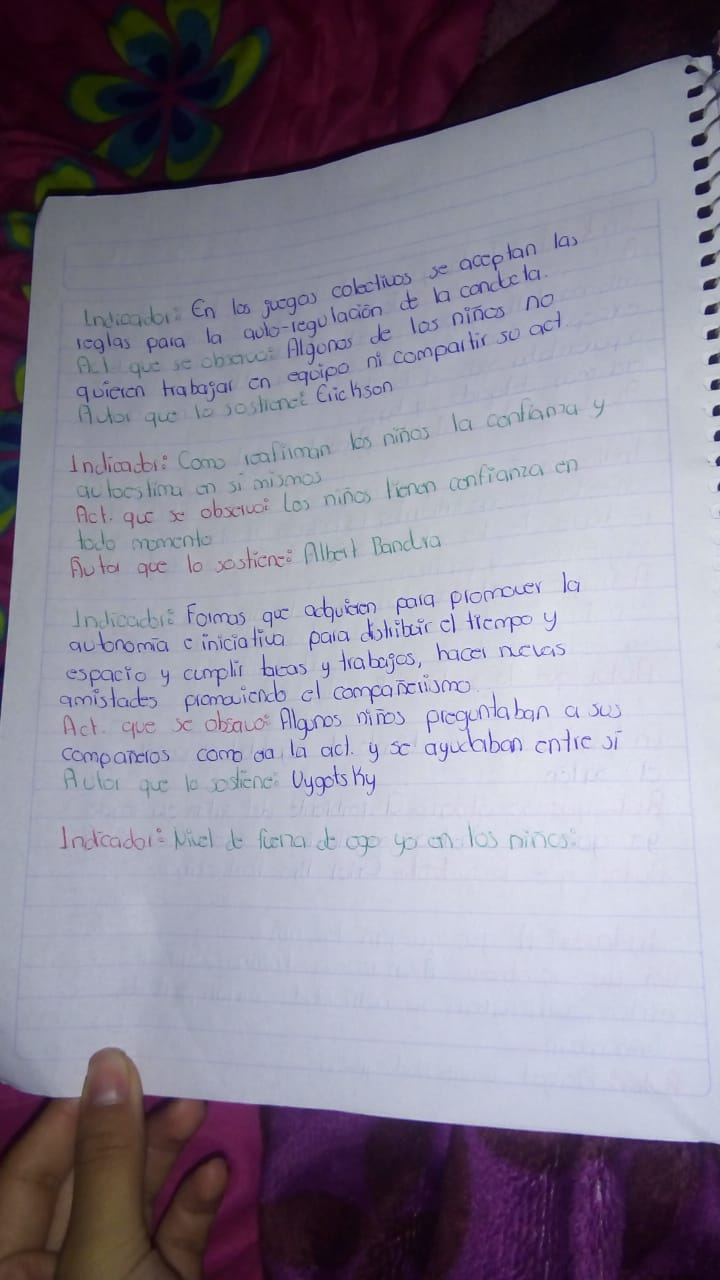 Indicador: En los juegos colectivos se aceptan las
reglas para la auto-regulación de la conducta.
Act que se observa: Algunos de los niños no
quieren trabajar en equipo ni compartir su act.
Autor que lo sostiene: Erickson
Indicador: Como reafirman los niños la confianza y
autoestima en sí mismos
Act. que se observa: Los niños tienen confianza en
todo momento
Autor que lo sostiene: Albert Bandura
Indicador: Formas que adquieren para promover la
autonomía e iniciativa para distribuir el tiempo y
espacio y cumplir tareas y trabajos, hacer nuevas
amistades promoviendo el compañerismo.
Act. que se observa: Algunos niños preguntaban a sus
compañeros como era la act. y se ayudaban entre sí
Autor que lo sostiene: Vygotsky
Indicador: Nivel de fuerza de ego yo en los niños: